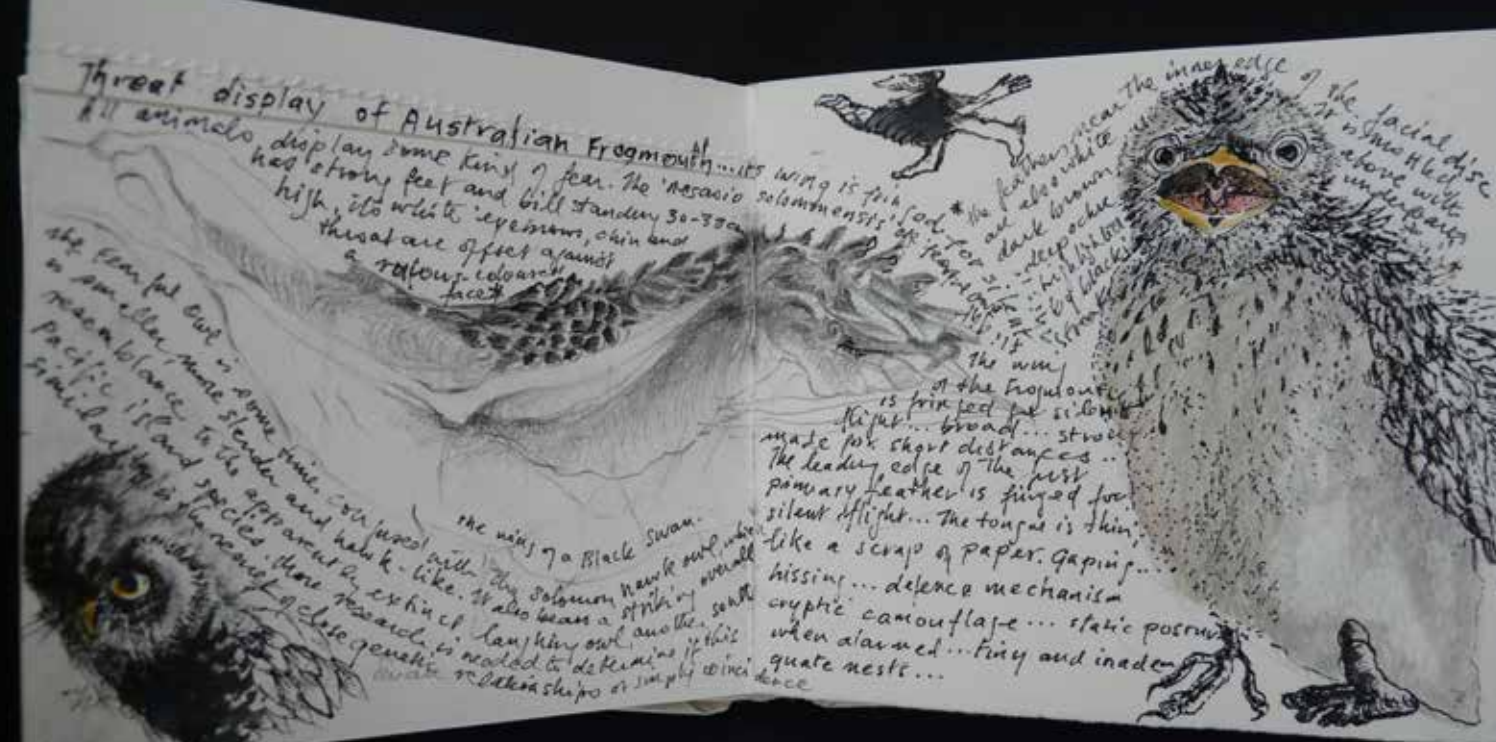 Threat display of Australian Frogmouth... its wing is fringed for silent
All animals display some kind of fear. The 'nesasio solomonensis' or fearful owl
has strong feet and bill standing 30-38cm
high, its white eyebrows, chin and
throat are offset against
a rufous-coloured
face*
the fearful owl is sometimes confused with the solomon hawk owl, which
is smaller, more slender and hawk-like. It also bears a striking overall
resemblance to the apparently extinct laughing owl, another south
pacific island species. More research is needed to determine if this
similarity is the result of close genetic relationships or simply coincidence
the wing of a Black Swan.
* the feathers near the inner edge of the facial disc
are also white. It is mottled
dark brown above with
deep ochre underparts
highlighted
by black
streaks
The wing
of the frogmouth
is fringed for silent
flight... broad... strong..
made for short distances..
The leading edge of the first
primary feather is finged for
silent flight... The tongue is thin,
like a scrap of paper. Gaping...
hissing... defence mechanism
cryptic camouflage... static posture
when alarmed... tiny and inade
quate nests...